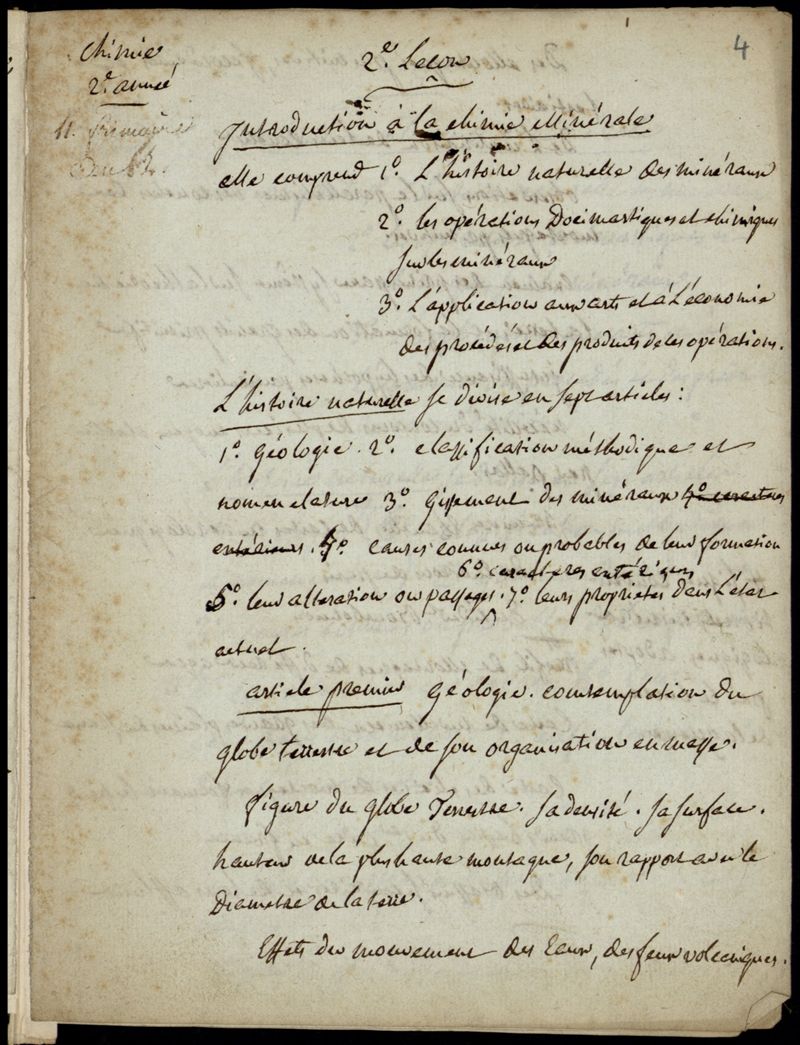 4
Chimie
2.e année
11. frimaire
2.e Lecon
Introduction à la chimie Minérale
elle comprend 1.o L'histoire naturelle des minéraux
2.o les opérations Docimastiques et chimiques
sur les minéraux
3.o L'application aux arts et à L'économie
des procédés et des produits de ces opérations.
L'histoire naturelle se divise en sept articles :
1.o géologie. 2.o classification méthodique et
nomenclature 3.o gissement des minéraux 4.o caracteres
extérieurs. 4.o causes connues ou probables de leur formation
6.o caracteres extérieurs
5.o leur alteration ou passages. 7.o leurs proprietés dans L'état
actuel.
article premier géologie. contemplation du
globe terrestre et de son organisation en masse.
figure du globe Terrestre. sa densité. sa surface.
hauteur de la plus haute montagne, son rapport avec le
Diametre de la terre.
Effets du mouvement des Eaux, des feux volcaniques.